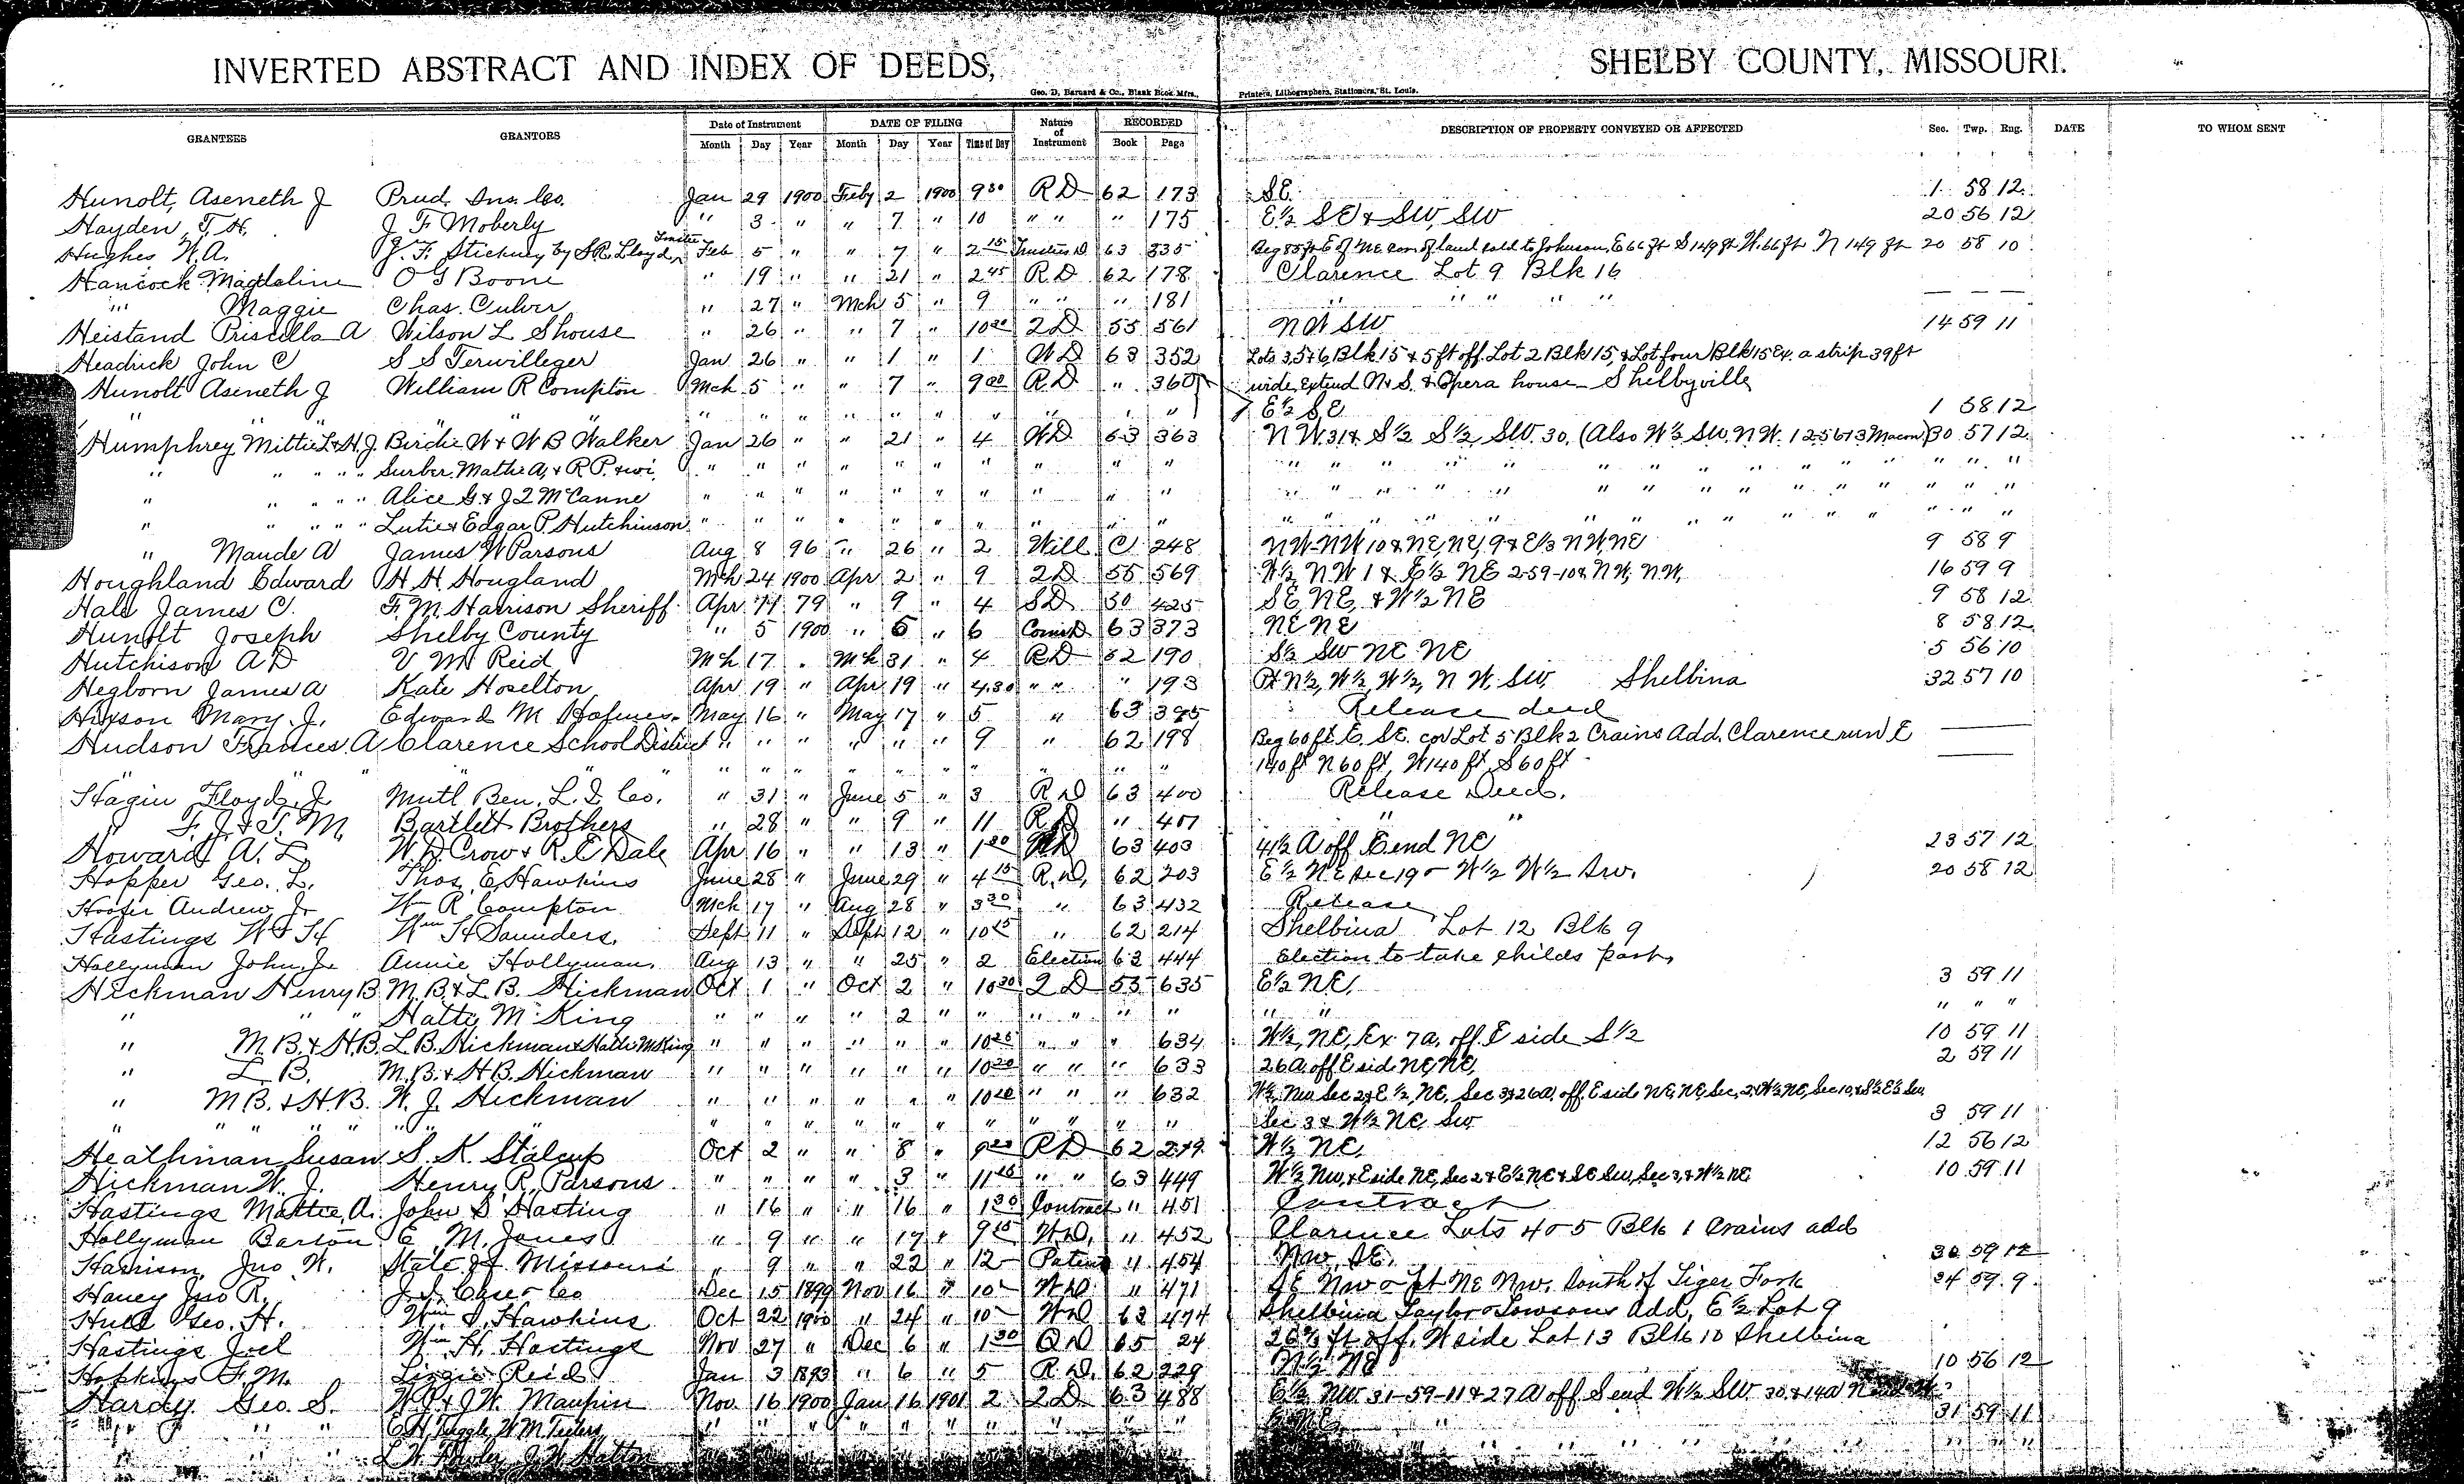 INVERTED ABSTRACT AND INDEX OF DEEDS, SHELBY COUNTY, MISSOURI.
Geo. D. Barnard & Co., Blank Book Mfrs., Printers, Lithographers, Stationers, St. Louis.
GRANTEES GRANTORS Date of Instrument DATE OF FILING Nature of Instrument RECORDED DESCRIPTION OF PROPERTY CONVEYED OR AFFECTED Sec. Twp. Rng. DATE TO WHOM SENT
Month Day Year Month Day Year Time of Day Book Page
Hunolt, Aseneth J Prud. Ins. Co. Jan 29 1900 Feby 2 1900 9 30 R D 62 173 SE. 1 58 12
Hayden, T. H. J F Moberly " 3 " " 7 " 10 " " " 175 E½ SE & SW, SW 20 56 12
Hughes W.A. J. F. Stickney by S.R. Lloyd, Trustee Feb 5 " " 7 " 2 15 Trustees D 63 335 Beg 85 ft E of NE cor. of land sold to Johnson, E 66 ft S 149 ft W. 66 ft N 149 ft 20 58 10
Hancock Magdaline O G Boone " 19 " " 21 " 2 45 R. D 62 178 Clarence Lot 9 Blk 16
" Maggie Chas. Culver " 27 " Mch 5 " 9 " " " 181 " " " " "
Heistand Priscilla A Wilson L Shouse " 26 " " 7 " 10 30 2 D 55 561 NW SW 14 59 11
Headrick John C S S Terwilleger Jan 26 " " 1 " 1 W D 63 352 Lots 3, 5 & 6, Blk 15 & 5 ft off Lot 2 Blk 15, & Lot four Blk 15 Ex. a strip 39 ft
Hunolt Aseneth J William R Compton Mch 5 " " 7 " 9 00 R. D " 360 wide, extend N & S. & Opera house Shelbyville
" " " " " " " " " " " " " " " E½ SE 1 58 12
Humphrey Mittie L & H. J. Birdie W & W B Walker Jan 26 " " 21 " 4 W D 63 363 N W. 31 & S½ S½ SW. 30. (Also W½ SW, N W. 12 56 13 Macon) 30 57 12
" " " " " Surber, Mattie A, & R P. & wi. " " " " " " " " " " " " " " " " " " " " " " " "
" " " " " Alice G. & J L McCanne " " " " " " " " " " " " " " " " " " " " " " " "
" " " " " Lutie & Edgar P. Hutchinson " " " " " " " " " " " " " " " " " " " " " " " "
" Maude A James W Parsons Aug 8 96 " 26 " 2 Will C 248 NW-NW 10 & NE, NE, 9 & E⅓ NW, NE 9 58 9
Houghland Edward H. H. Hougland Mch 24 1900 Apr 2 " 9 2 D 55 569 W½ NW 1 & E½ NE 2-59-10 & NW, NW, 16 59 9
Hale James C. F. M. Harrison Sheriff Apr 11 79 " 9 " 4 S D 30 425 SE, NE, & W½ NE 9 58 12
Hunolt Joseph Shelby County " 5 1900 " 6 " 6 Comr D 63 373 NE NE 8 58 12
Hutchison A D V M Reid Mch 17 " Mch 31 " 4 R. D 62 190 S½ SW NE NE 5 56 10
Hegborn James A Kate Hoselton Apr 19 " Apr 19 " 4.30 " " " 193 Pt N½, W½, W½, N W. SW, Shelbina 32 57 10
Hixson Mary J. Edward M Holmes May 16 " May 17 " 5 " 63 395 Release deed
Hudson Frances A Clarence School District " " " " " " 9 " 62 198 Beg 60 ft E. SE. cor Lot 5 Blk 2 Crains Add. Clarence run E
" " " " " " " " " " " " 140 ft N 60 ft, W 140 ft, S 60 ft
Hagin Floyd, J Mutl Ben. L. I. Co. " 31 " June 5 " 3 R D 63 400 Release Deed.
" F. J. & T. M. Bartlett Brothers " 28 " " 9 " 11 R D " 401 " "
Howard A. L. W. D. Crow & R. E Dale Apr 16 " " 13 " 1 30 D 63 403 41½ A off E end NE 23 57 12
Hopper Geo. L. Thos E Hawkins June 28 " June 29 " 4 15 R. D, 62 203 E½ NE Sec 19 & W½ W½ Sw. 20 58 12
Hoofer Andrew J. Wm R Compton Mch 17 " Aug 28 " 3 30 " 63 432 Release
Hastings W & H Wm H Saunders, Sept 11 " Sept 12 " 10 15 " 62 214 Shelbina Lot 12 Blk 9
Hollyman John, J. Annie Hollyman, Aug 13 " " 25 " 2 Election 63 444 Election to take childs part,
Hickman Henry B M. B & L B. Hickman Oct 1 " Oct 2 " 10 30 2 D 55 635 E½ NE, 3 59 11
" " Hatte M King " " " " 2 " " " " " " " " " " "
" M. B. & H. B. L. B. Hickman & Hatte M King " " " " " " 10 25 " " " 634 W½, NE, Ex 7a. off E side S½ 10 59 11
" L. B. M. B. & H. B. Hickman " " " " " " 10 20 " " " 633 26 A. off E side NE, NE, 2 59 11
" M B. & H. B. W. J. Hickman " " " " " " 10 20 " " " 632 W½, NW Sec 2 & E½, NE, Sec 3, & 26a off E side NE, NE, Sec, 2, & W½ NE, Sec 10, & S½ E½ Sw
" " " " " " " " " " " " " " " " " " Sec 3 & W½ NE Sw 3 59 11
Heathman Susan S. K. Stalcup Oct 2 " " 8 " 9 R D 62 219 W½ NE, 12 56 12
Hickman W. J. Henry R. Parsons " " " " 3 " 11 15 " " 63 449 W½ NW, & E side NE, Sec 2 & E½ NE & SE SW, Sec 3, & W½ NE 10 59 11
Hastings Mattie A. John S Hasting " 16 " " 16 " 1 30 Contract " 451 Contract
Hollyman Barton E. M. Jones " 9 " " 17 " 9 15 W D, " 452 Clarence Lots 4 & 5 Blk 1 Crains add
Harrison, Jno W. State of Missouri " 9 " " 22 " 12 Patent " 454 NW, SE, 36 59 12
Haney Jno R. J. I. Case & Co Dec 15 1899 Nov 16 " 10 W D " 471 SE NW & pt NE NW. South of Tiger Fork 24 59 9
Hull Geo. H. Wm Hawkins Oct 22 1900 " 24 " 10 W D 63 474 Shelbina Taylor & Towsons Add, E½ Lot 9
Hastings Joel Wm H. Hastings Nov 27 " Dec 6 " 1 30 Q D 65 24 ft off. W side Lot 13 Blk 10 Shelbina
Hopkins F. M. Lizzie Reid Jan 3 1893 " 6 " 5 R. D. 62 229 N½ NE 10 56 12
Hardy Geo. S. W. P & J. W. Maupin Nov 16 1900 Jan 16 1901 2 2 D 63 488 E½ NW 31-59-11 & 27 A off S end W½ SW 30 & 14a
" " " E H, Tuggle, W M Teeters, " " " " " " " " " " 31 59 11
" " " L W Fowler, J. W Hatton " " " " " " " " " "